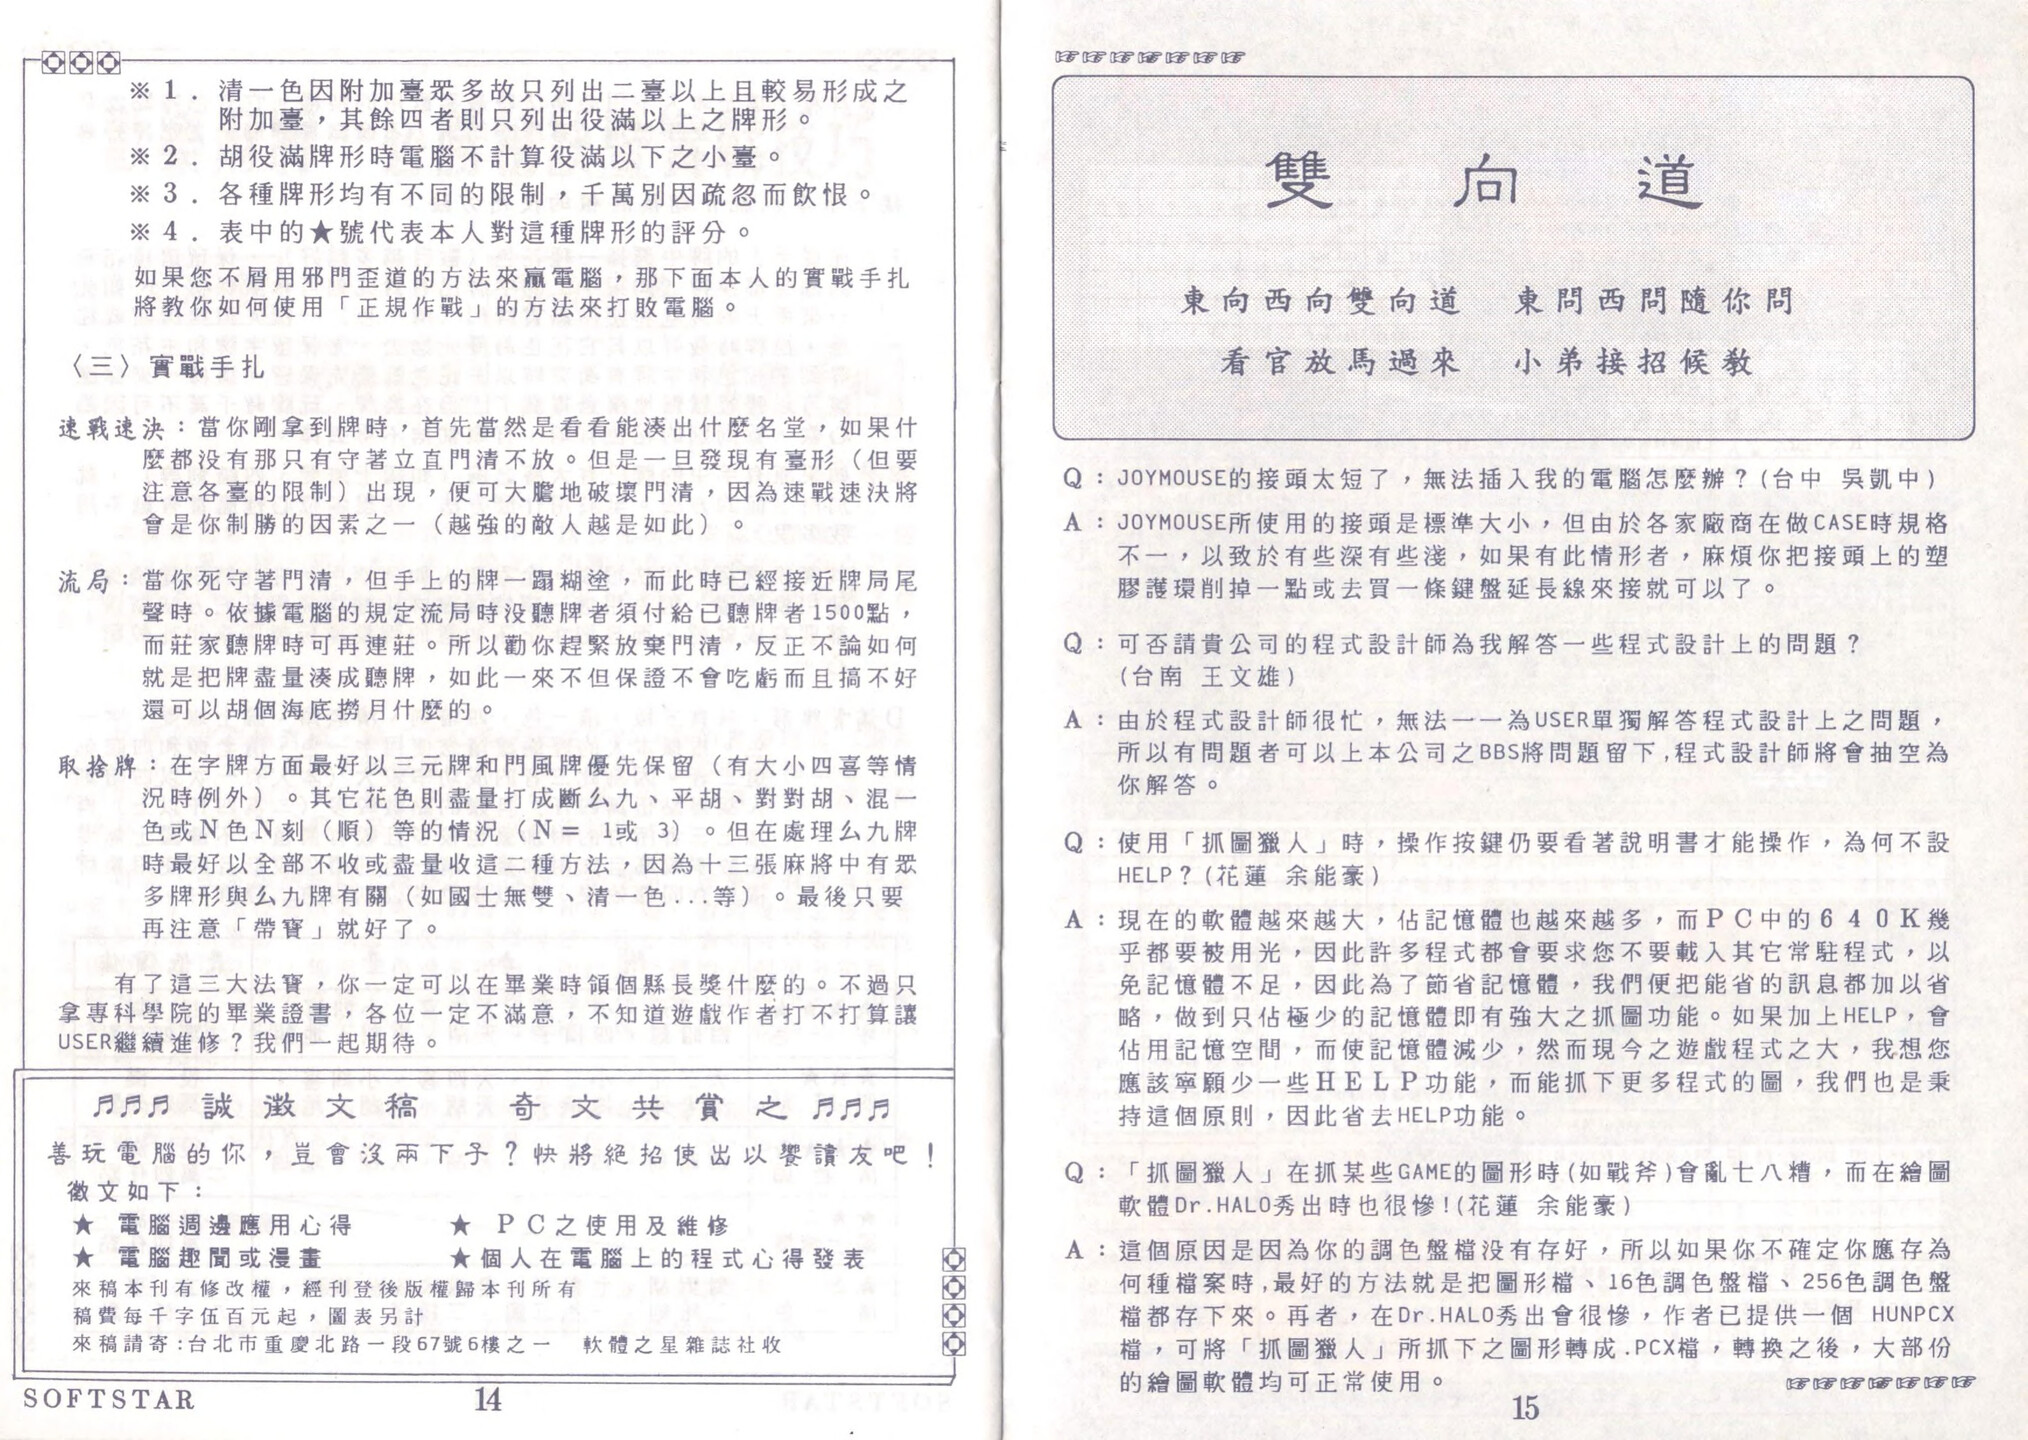 ※1. 清一色因附加臺眾多故只列出二臺以上且較易形成之
附加臺，其餘四者則只列出役滿以上之牌形。
※2. 胡役滿牌形時電腦不計算役滿以下之小臺。
※3. 各種牌形均有不同的限制，千萬別因疏忽而飲恨。
※4. 表中的★號代表本人對這種牌形的評分。
如果您不屑用邪門歪道的方法來贏電腦，那下面本人的實戰手扎
將教你如何使用「正規作戰」的方法來打敗電腦。
〈三〉實戰手扎
速戰速決：當你剛拿到牌時，首先當然是看看能湊出什麼名堂，如果什
麼都没有那只有守著立直門清不放。但是一旦發現有臺形（但要
注意各臺的限制）出現，便可大膽地破壞門清，因為速戰速決將
會是你制勝的因素之一（越強的敵人越是如此）。
流局：當你死守著門清，但手上的牌一蹋糊塗，而此時已經接近牌局尾
聲時。依據電腦的規定流局時没聽牌者須付給已聽牌者1500點，
而莊家聽牌時可再連莊。所以勸你趕緊放棄門清，反正不論如何
就是把牌盡量湊成聽牌，如此一來不但保證不會吃虧而且搞不好
還可以胡個海底撈月什麼的。
取捨牌：在字牌方面最好以三元牌和門風牌優先保留（有大小四喜等情
況時例外）。其它花色則盡量打成斷么九、平胡、對對胡、混一
色或N色N刻（順）等的情況（N= 1或 3）。但在處理么九牌
時最好以全部不收或盡量收這二種方法，因為十三張麻將中有眾
多牌形與么九牌有關（如國士無雙、清一色...等）。最後只要
再注意「帶寶」就好了。
有了這三大法寶，你一定可以在畢業時領個縣長獎什麼的。不過只
拿專科學院的畢業證書，各位一定不滿意，不知道遊戲作者打不打算讓
USER繼續進修？我們一起期待。
♬♬♬ 誠徵文稿 奇文共賞之♬♬♬
善玩電腦的你，豈會沒兩下子？快將絕招使出以饗讀友吧！
徵文如下：
★ 電腦週邊應用心得 ★ PC之使用及維修
★ 電腦趣聞或漫畫 ★個人在電腦上的程式心得發表
來稿本刊有修改權，經刊登後版權歸本刊所有
稿費每千字伍百元起，圖表另計
來稿請寄:台北市重慶北路一段67號6樓之一 軟體之星雜誌社收
SOFTSTAR 14
雙向道
東向西向雙向道 東問西問隨你問
看官放馬過來 小弟接招候教
Q：JOYMOUSE的接頭太短了，無法插入我的電腦怎麼辦？(台中 吳凱中)
A：JOYMOUSE所使用的接頭是標準大小，但由於各家廠商在做CASE時規格
不一，以致於有些深有些淺，如果有此情形者，麻煩你把接頭上的塑
膠護環削掉一點或去買一條鍵盤延長線來接就可以了。
Q：可否請貴公司的程式設計師為我解答一些程式設計上的問題？
(台南 王文雄)
A：由於程式設計師很忙，無法一一為USER單獨解答程式設計上之問題，
所以有問題者可以上本公司之BBS將問題留下,程式設計師將會抽空為
你解答。
Q：使用「抓圖獵人」時，操作按鍵仍要看著說明書才能操作，為何不設
HELP？(花蓮 余能豪)
A：現在的軟體越來越大，佔記憶體也越來越多，而PC中的640K幾
乎都要被用光，因此許多程式都會要求您不要載入其它常駐程式，以
免記憶體不足，因此為了節省記憶體，我們便把能省的訊息都加以省
略，做到只佔極少的記憶體即有強大之抓圖功能。如果加上HELP，會
佔用記憶空間，而使記憶體減少，然而現今之遊戲程式之大，我想您
應該寧願少一些HELP功能，而能抓下更多程式的圖，我們也是秉
持這個原則，因此省去HELP功能。
Q：「抓圖獵人」在抓某些GAME的圖形時(如戰斧)會亂七八糟，而在繪圖
軟體Dr.HALO秀出時也很慘!(花蓮 余能豪)
A：這個原因是因為你的調色盤檔没有存好，所以如果你不確定你應存為
何種檔案時,最好的方法就是把圖形檔、16色調色盤檔、256色調色盤
檔都存下來。再者，在Dr.HALO秀出會很慘，作者已提供一個 HUNPCX
檔，可將「抓圖獵人」所抓下之圖形轉成.PCX檔，轉換之後，大部份
的繪圖軟體均可正常使用。
15